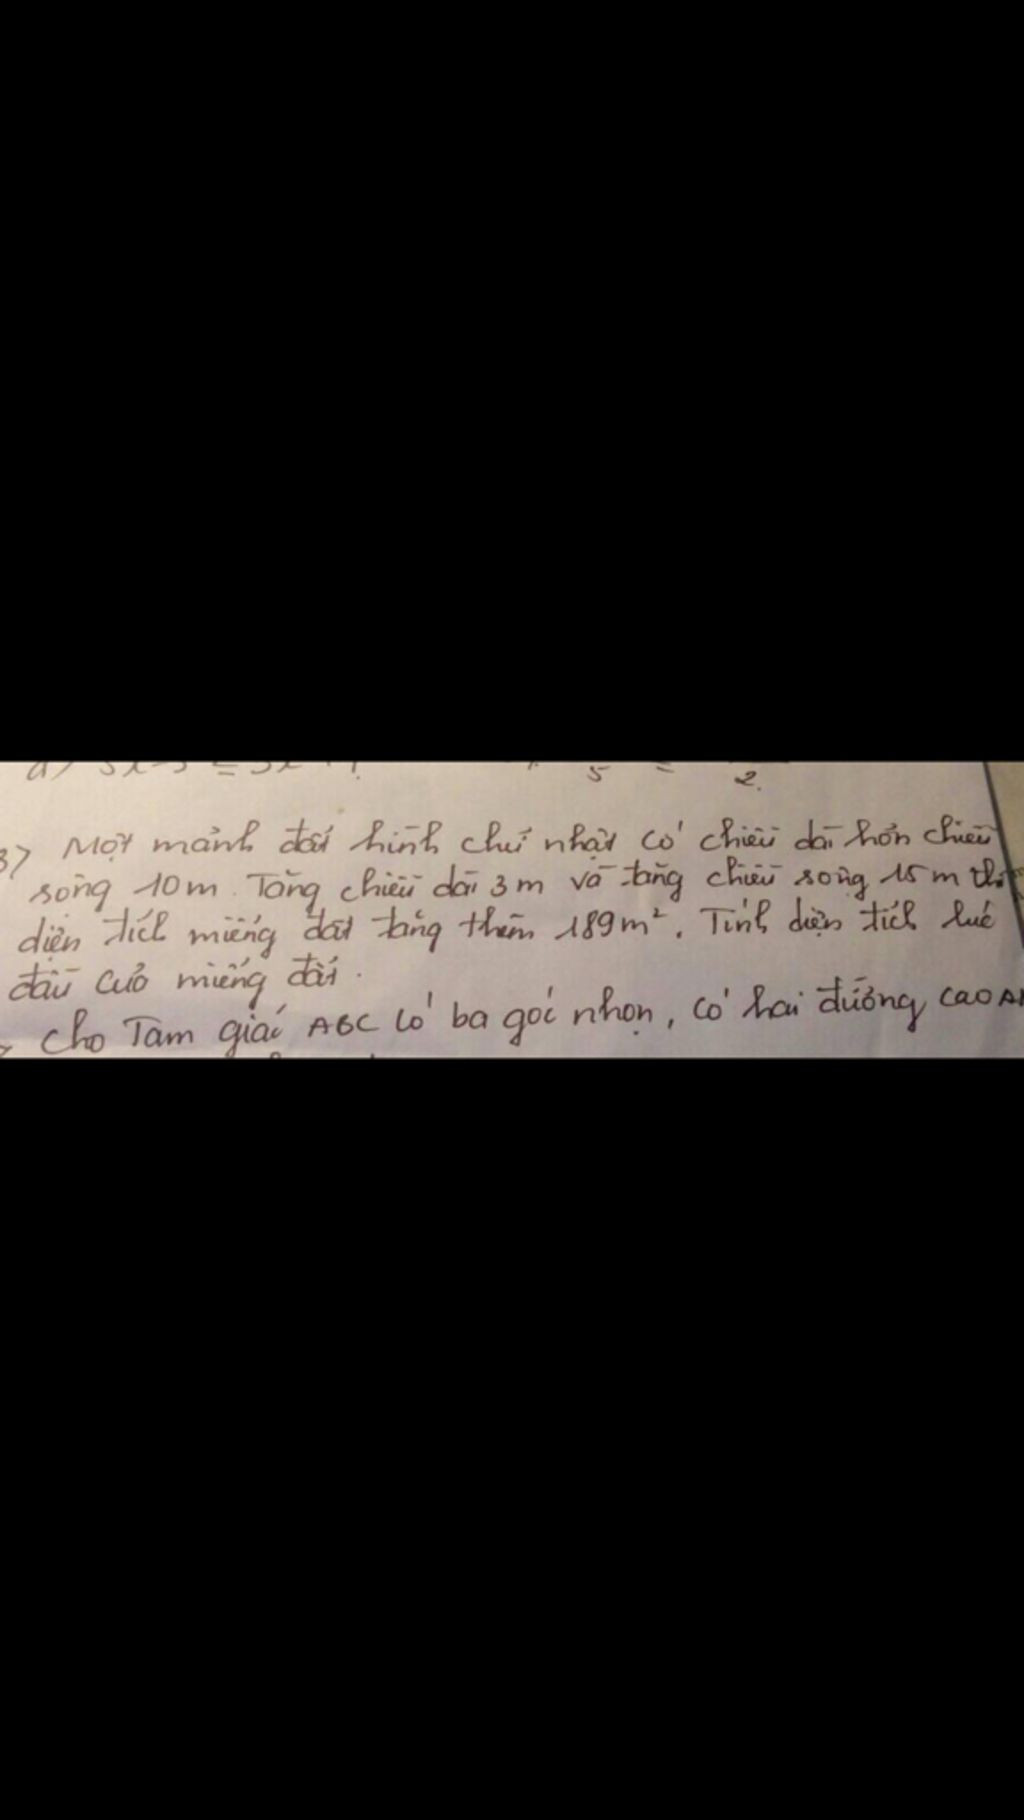 3) Một mảnh đất hình chữ nhật có chiều dài hơn chiều
rộng 10m. Tăng chiều dài 3m và tăng chiều rộng 15m thì
diện tích miếng đất tăng thêm 189m². Tính diện tích lúc
đầu của miếng đất.
Cho Tam giác ABC có ba góc nhọn, có hai đường cao